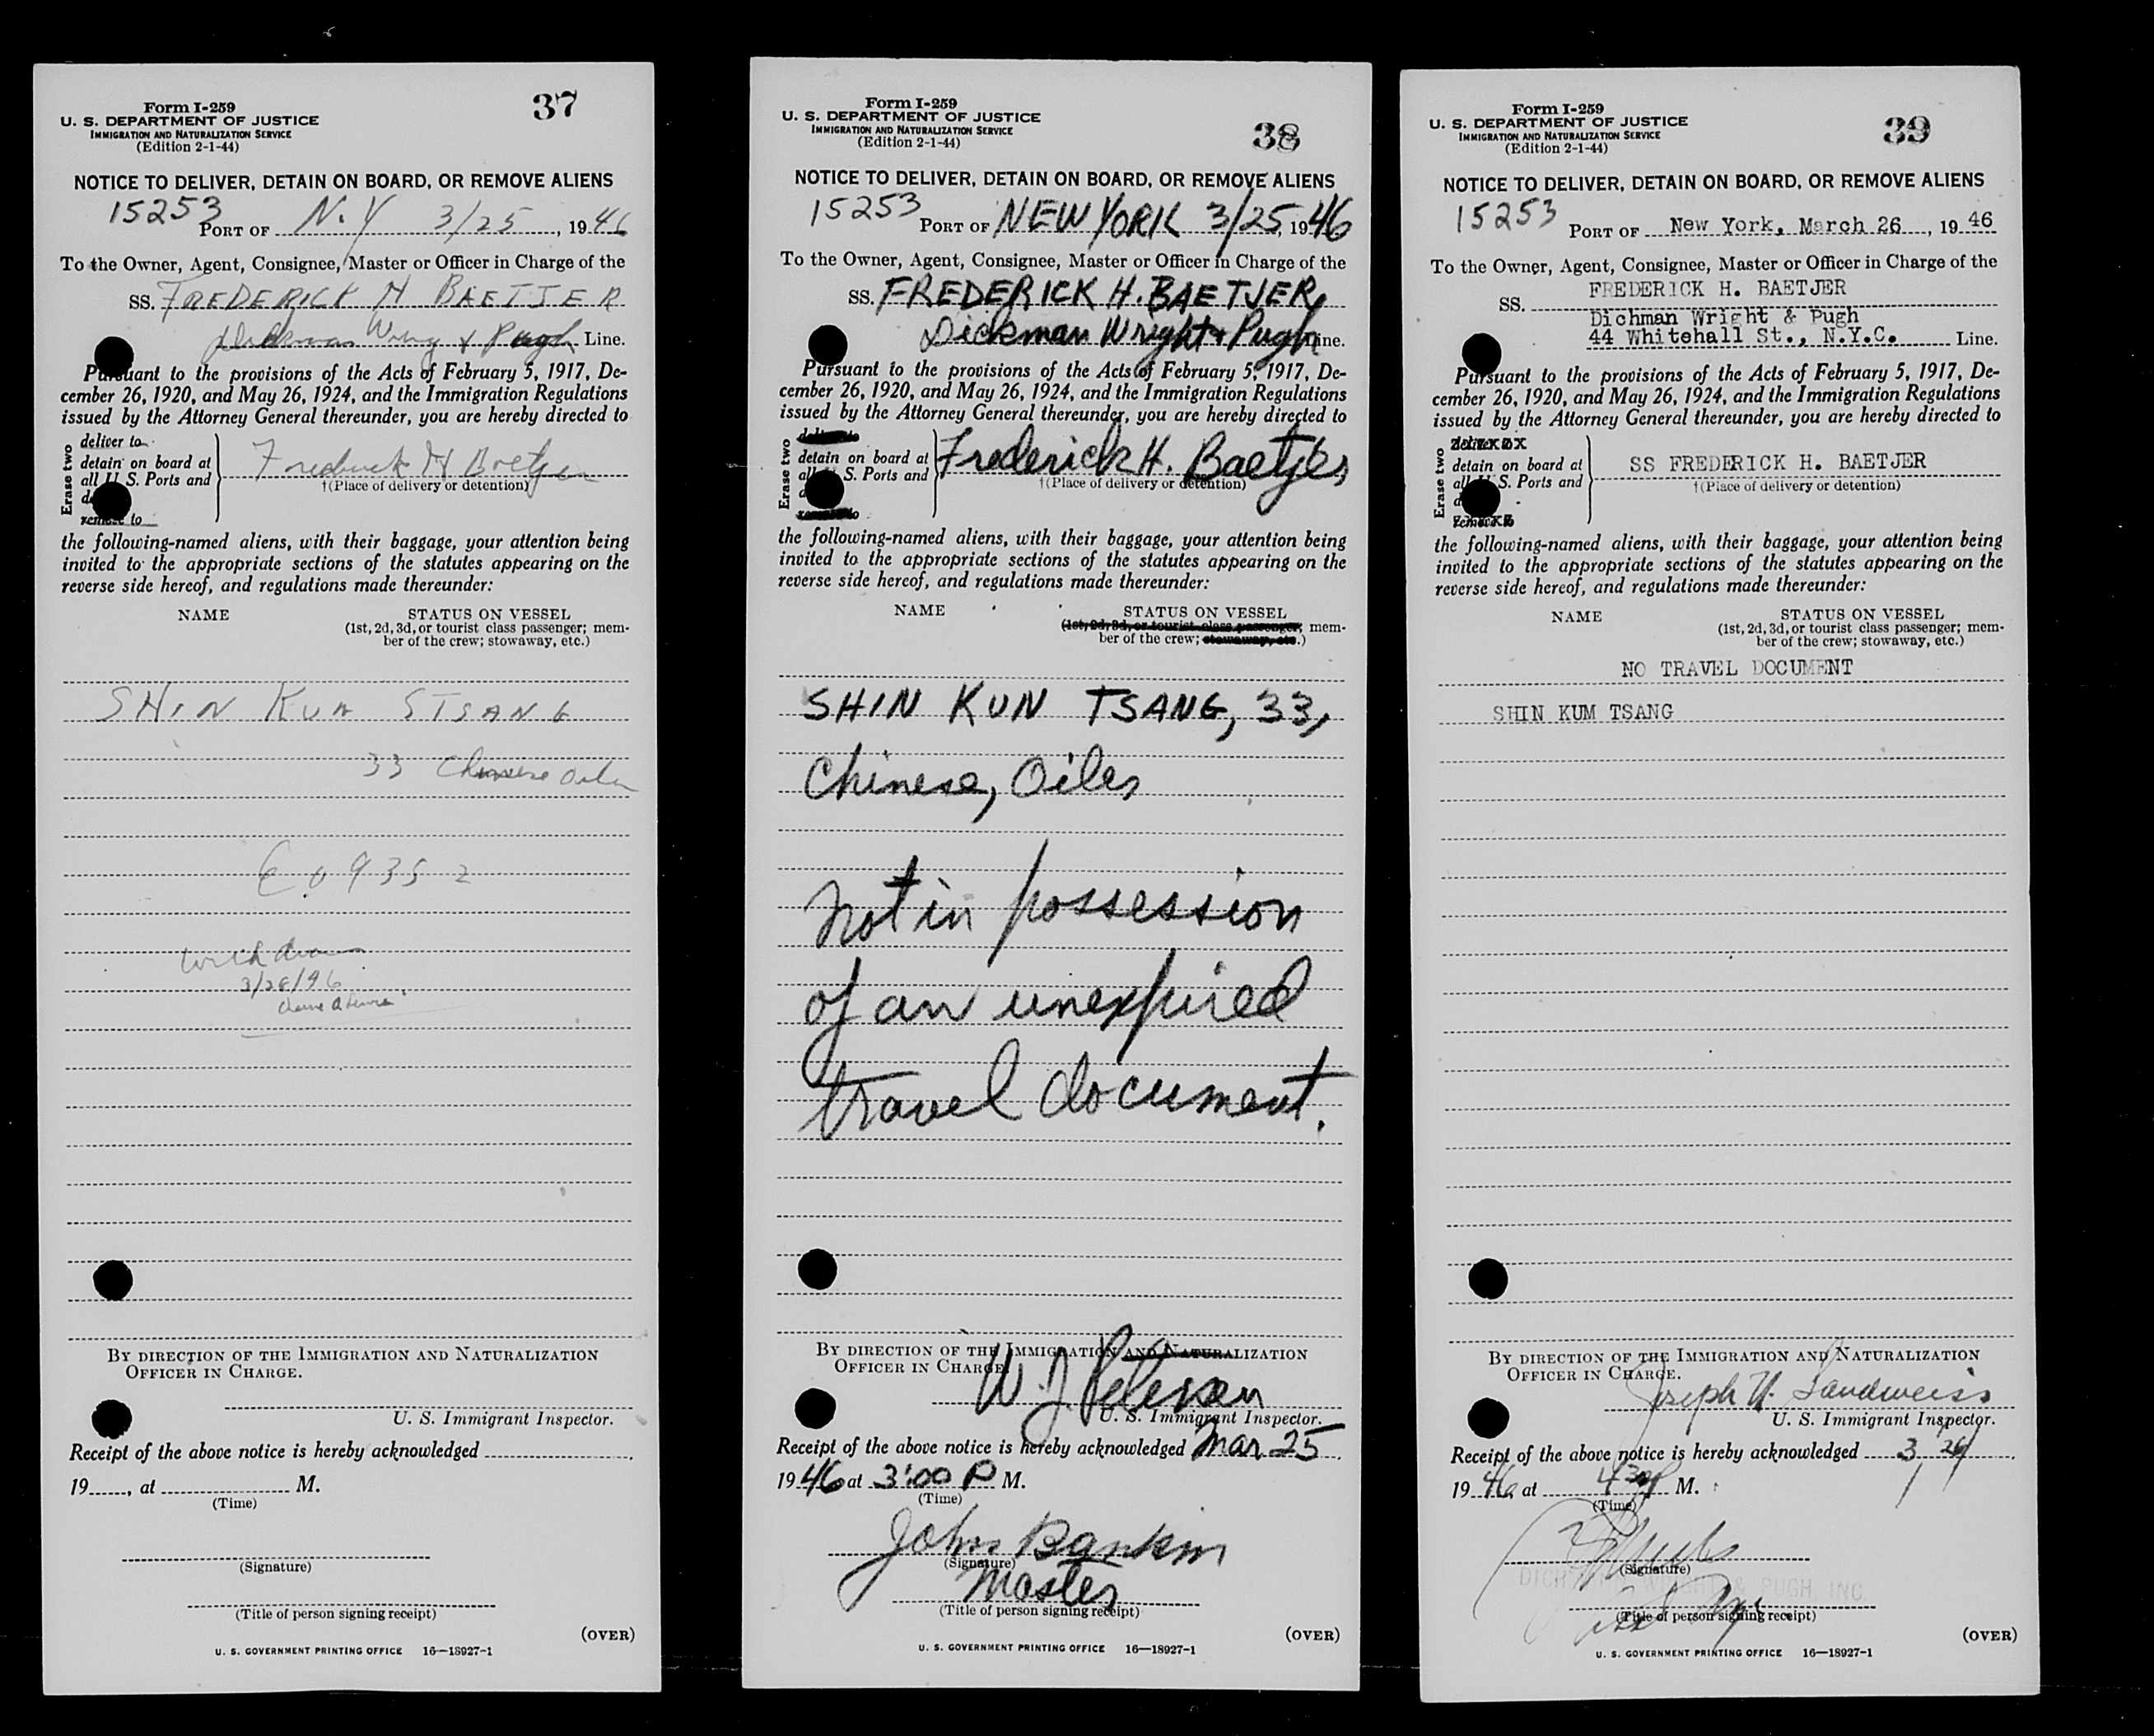 Form I-259
U. S. DEPARTMENT OF JUSTICE
IMMIGRATION AND NATURALIZATION SERVICE
(Edition 2-1-44)
37
NOTICE TO DELIVER, DETAIN ON BOARD, OR REMOVE ALIENS
15253
PORT OF N.Y 3/25, 1946
To the Owner, Agent, Consignee, Master or Officer in Charge of the
SS. FREDERICK H BAETJER
& Pugh Line.
Pursuant to the provisions of the Acts of February 5, 1917, De-
cember 26, 1920, and May 26, 1924, and the Immigration Regulations
issued by the Attorney General thereunder, you are hereby directed to
Erase two
deliver to
detain on board at
all U. S. Ports and
remove to
Frederick H Baetjer
†(Place of delivery or detention)
the following-named aliens, with their baggage, your attention being
invited to the appropriate sections of the statutes appearing on the
reverse side hereof, and regulations made thereunder:
NAME STATUS ON VESSEL
(1st, 2d, 3d, or tourist class passenger; mem-
ber of the crew; stowaway, etc.)
SHIN KUN STSANG
33 Chinese Oiler
E09352
withdrawn
3/28/46
BY DIRECTION OF THE IMMIGRATION AND NATURALIZATION
OFFICER IN CHARGE.
U. S. Immigrant Inspector.
Receipt of the above notice is hereby acknowledged
19 , at M.
(Time)
(Signature)
(Title of person signing receipt)
(OVER)
U. S. GOVERNMENT PRINTING OFFICE 16—18927-1
Form I-259
U. S. DEPARTMENT OF JUSTICE
IMMIGRATION AND NATURALIZATION SERVICE
(Edition 2-1-44)
38
NOTICE TO DELIVER, DETAIN ON BOARD, OR REMOVE ALIENS
15253
PORT OF NEW YORK 3/25, 1946
To the Owner, Agent, Consignee, Master or Officer in Charge of the
SS. FREDERICK H. BAETJER,
Dickman Wright & Pugh Line.
Pursuant to the provisions of the Acts of February 5, 1917, De-
cember 26, 1920, and May 26, 1924, and the Immigration Regulations
issued by the Attorney General thereunder, you are hereby directed to
Erase two
deliver to
detain on board at
all U. S. Ports and
remove to
Frederick H. Baetjer
†(Place of delivery or detention)
the following-named aliens, with their baggage, your attention being
invited to the appropriate sections of the statutes appearing on the
reverse side hereof, and regulations made thereunder:
NAME STATUS ON VESSEL
(1st, 2d, 3d, or tourist class passenger; mem-
ber of the crew; stowaway, etc.)
SHIN KUN TSANG, 33,
Chinese, Oiler
Not in possession
of an unexpired
travel document.
BY DIRECTION OF THE IMMIGRATION AND NATURALIZATION
OFFICER IN CHARGE
W. J. Peterson
U. S. Immigrant Inspector.
Receipt of the above notice is hereby acknowledged Mar 25
1946 at 3:00 P M.
(Time)
John
(Signature)
Master
(Title of person signing receipt)
(OVER)
U. S. GOVERNMENT PRINTING OFFICE 16—18927-1
Form I-259
U. S. DEPARTMENT OF JUSTICE
IMMIGRATION AND NATURALIZATION SERVICE
(Edition 2-1-44)
39
NOTICE TO DELIVER, DETAIN ON BOARD, OR REMOVE ALIENS
15253
PORT OF New York, March 26, 19 46
To the Owner, Agent, Consignee, Master or Officer in Charge of the
SS. FREDERICK H. BAETJER
Dichman Wright & Pugh
44 Whitehall St., N.Y.C. Line.
Pursuant to the provisions of the Acts of February 5, 1917, De-
cember 26, 1920, and May 26, 1924, and the Immigration Regulations
issued by the Attorney General thereunder, you are hereby directed to
Erase two
deliver to
detain on board at
all U. S. Ports and
remove to
SS FREDERICK H. BAETJER
†(Place of delivery or detention)
the following-named aliens, with their baggage, your attention being
invited to the appropriate sections of the statutes appearing on the
reverse side hereof, and regulations made thereunder:
NAME STATUS ON VESSEL
(1st, 2d, 3d, or tourist class passenger; mem-
ber of the crew; stowaway, etc.)
NO TRAVEL DOCUMENT
SHIN KUM TSANG
BY DIRECTION OF THE IMMIGRATION AND NATURALIZATION
OFFICER IN CHARGE.
Joseph H. Landweiss
U. S. Immigrant Inspector.
Receipt of the above notice is hereby acknowledged 3/26/
1946, at 430P M.
(Time)
(Signature)
DICHMANN WRIGHT & PUGH INC
(Title of person signing receipt)
(OVER)
U. S. GOVERNMENT PRINTING OFFICE 16—18927-1